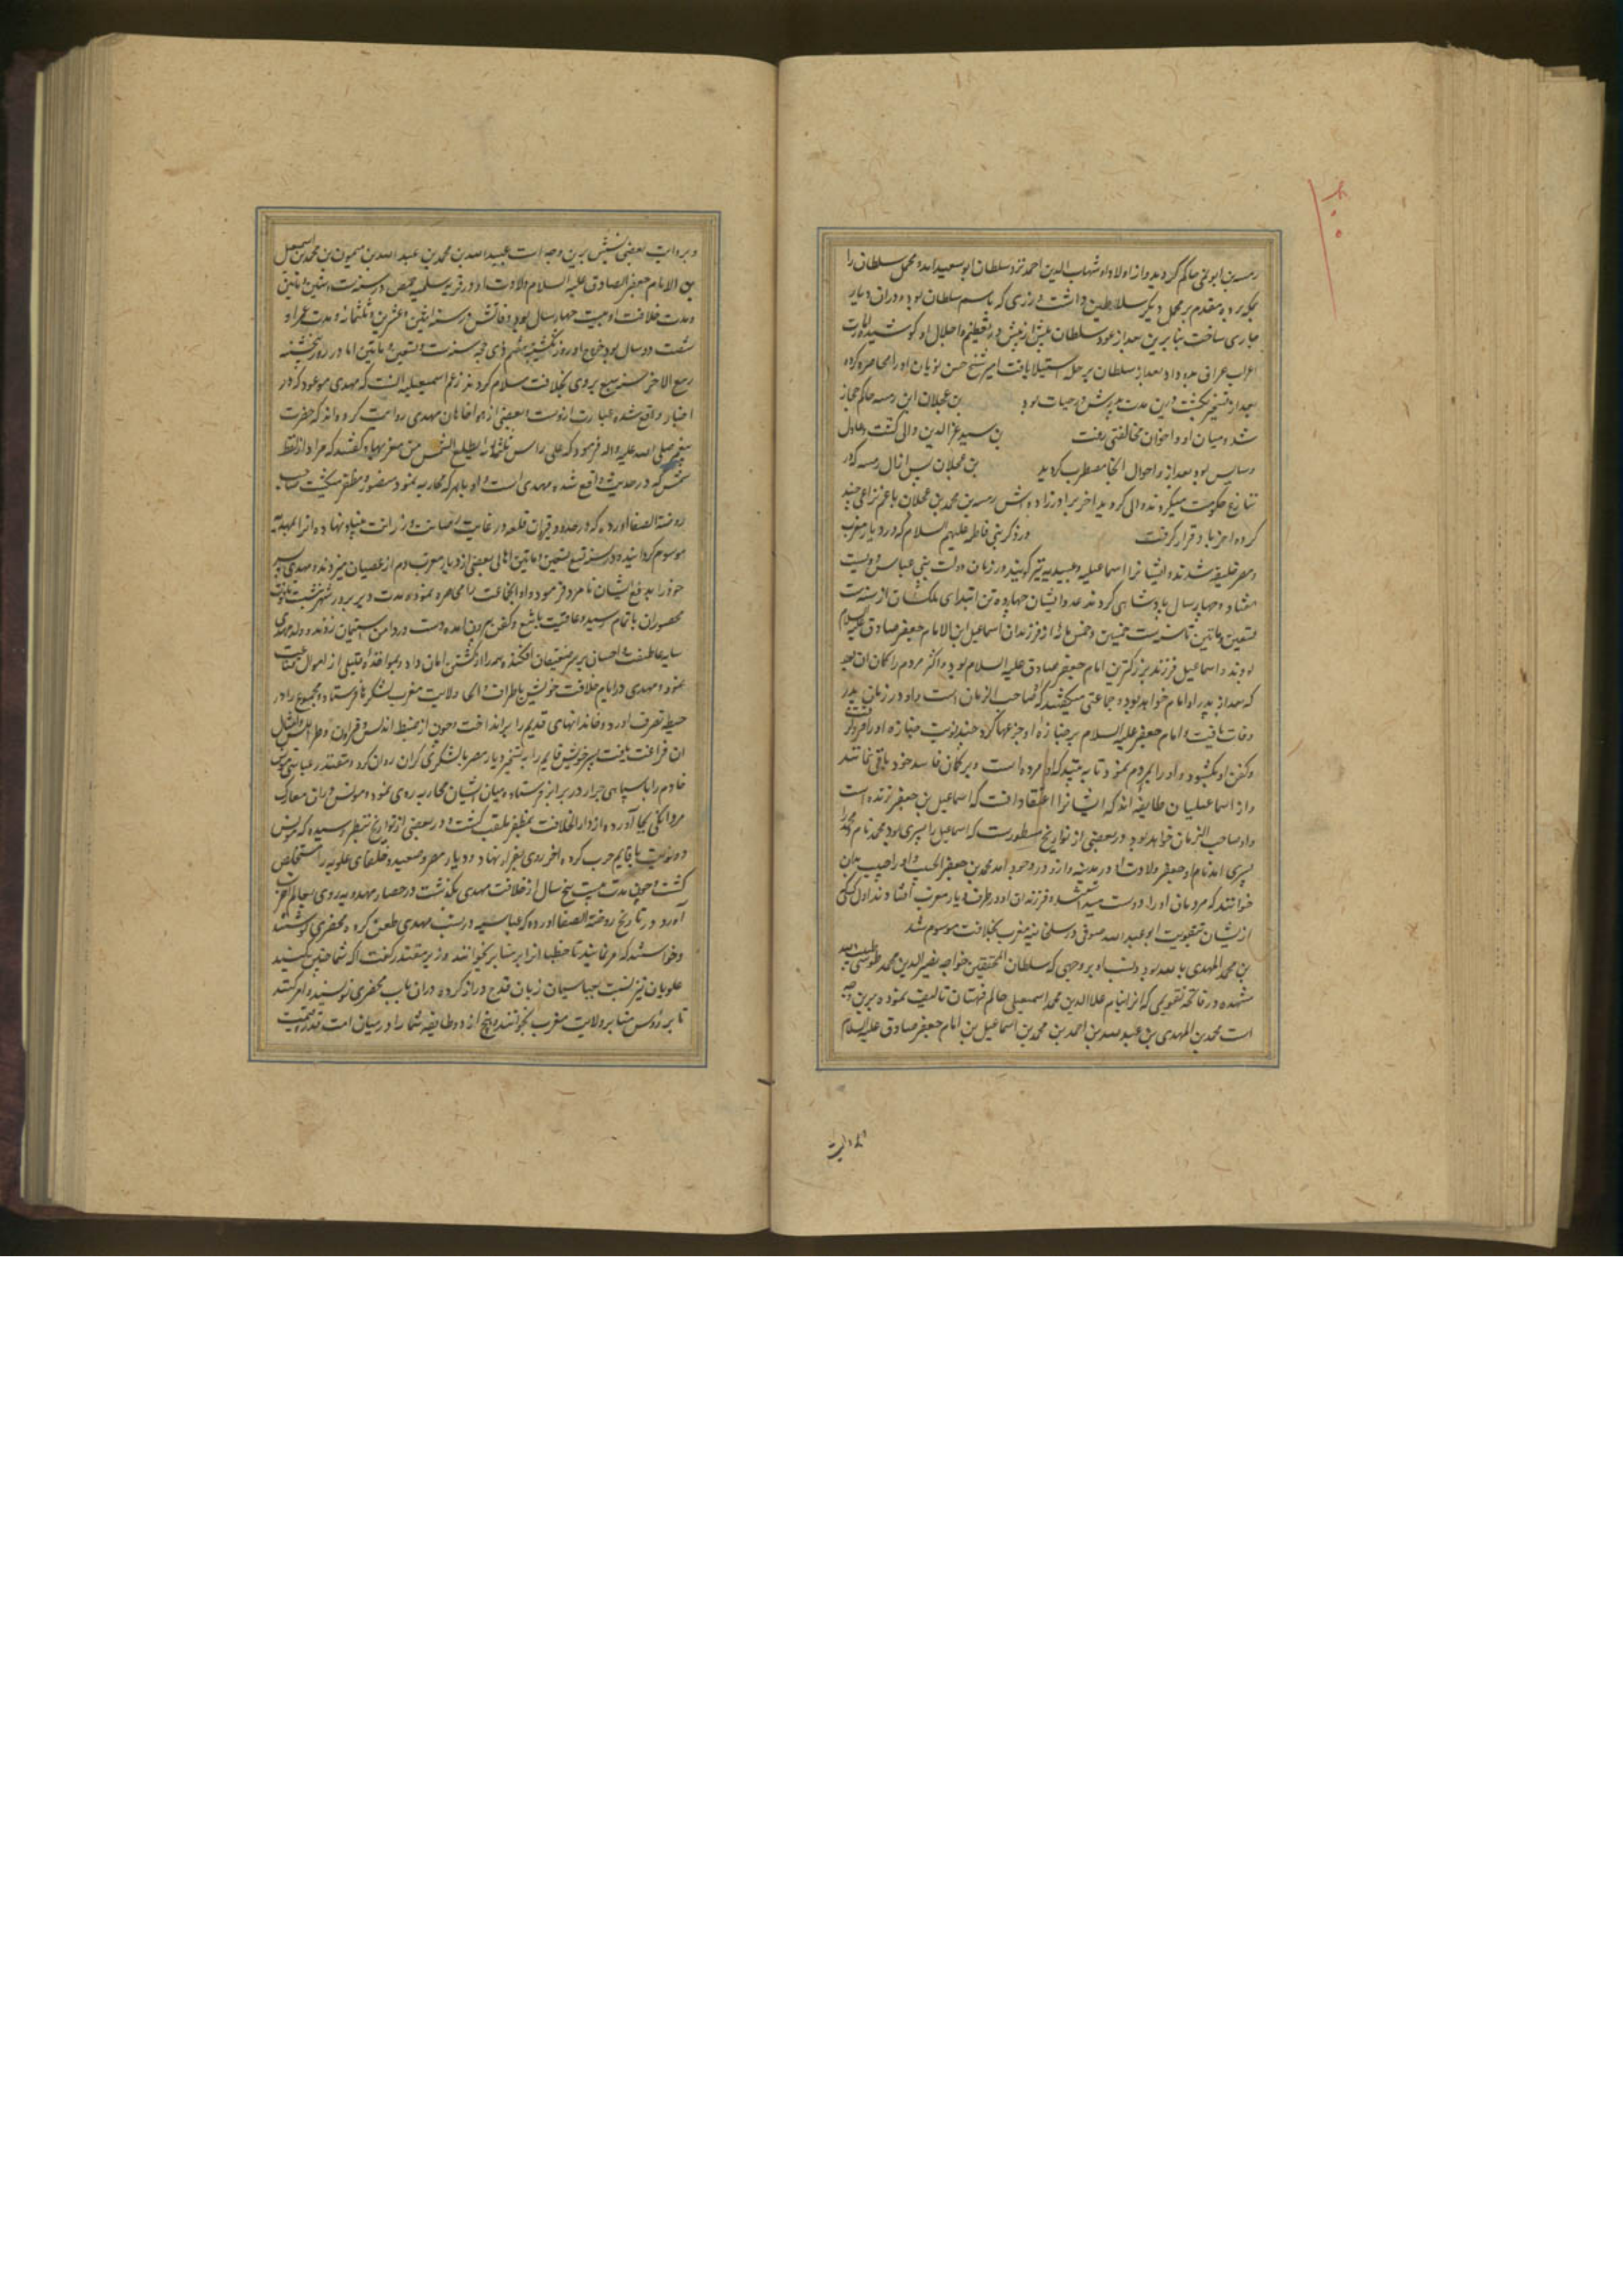 رمیسه بن ابو نمی حاکم گردید و از اولاد او شهاب الدین احمد نزد سلطان ابو سعید آمده محمل سلطان را
بمکه برد و مقدم بر محمل دیگر سلاطین داشت و زری که باسم سلطان بود در ان دیار
جاری ساخت بنابرین بعد از عود سلطان بیش از پیش در تعظیم و اجلال او کوشیده امارت
اعراب عراق بدو داد بعد از سلطان بر حله استیلا یافت امیر شیخ حسن نویان او را محاصره کرده
بعد از تسخیر بکشت درین مدت پدرش در حیات بود بن عجلان ابن رمیسه حاکم حجاز
شد و میان او و اخوان مخالفتی رفت بن سید عز الدین والی کشت و عادل
و سایس بود بعد از و احوال انجا مضطرب کردید بن عجلان پس از ال رمیسه که در
تنازع حکومت میکردند والی کردید اخر برادرزاده اش رمیسه بن محمد بن عجلان با عم نزاعی چند
کرده اخر باد قرار کرفت در ذکر بنی فاطمه علیهم السلام که در دیار مغرب
و مصر خلیفه شدند و ایشانرا اسماعیلیه و عبیدیه نیز کویند در زمان دولت بنی عباس دویست
هفتاد و چهار سال پادشاهی کردند عدد ایشان چهارده تن ابتدای ملکشان از سنه ست
تسعین و ماتین تا سنه ست خمسین و خمس مائه از فرزندان اسماعیل ابن الامام جعفر صادق علیه السلام
بودند و اسماعیل فرزند بزرکترین امام جعفر صادق علیه السلام بود و اکثر مردم را کمان ان بود
که بعد از پدر او امام خواهد بود و جماعتی میکفتند که صاحب الزمان است و او در زمان پدر
وفات یافت و امام جعفر علیه السلام بر جنازه او جزعها کرد چند نوبت جنازه او را فرو کرفت
و کفن او بکشود و او را بمردم نمود تا به بینید که او مرده است و بر کمان فاسد خود باقی نمانند
و از اسماعیلیان طایفه اند که ایشانرا اعتقاد انست که اسماعیل بن جعفر زنده است
و او صاحب الزمان خواهد بود و در بعضی از تواریخ مسطورست که اسماعیل را پسری بود محمد نام و محمد را
پسری آمد نام او جعفر ولادت او در مدینه و از و در وجود آمد محمد بن جعفر الحبیب و او را حبیب بدان
خواندند که مردمان او را دوست میداشتند و فرزندان او در طرف دیار مغرب افتادند اول کسی
ازیشان بتقویت ابو عبد الله صوفی در سلجماسه مغرب بخلافت موسوم شد
بن محمد المهدی بالله بود و نسب او بر وجهی که سلطان المحققین خواجه نصیر الدین محمد طوسی طیب الله
مشهده در فاتحه تقویمی که از برای نام علا الدین محمد اسمعیلی حاکم قهستان تالیف نموده برین وجه
است محمد بن المهدی بن عبد الله بن احمد بن محمد بن اسماعیل بن امام جعفر صادق علیه السلام
و بروایت بعضی نسبش برین وجه است عبید الله بن محمد بن عبد الله بن میمون بن محمد بن اسمعیل
بن الامام جعفر الصادق علیه السلام ولادت او در قریه سلمیه حمص در سنه ست و ستین و ماتین
و مدت خلافت او بیست چهار سال بود و وفاتش در سنه اثنین و عشرین و ثلثمائه و مدت عمر او
شصت دو سال بود خروج او روز یکشنبه هفتم ذی حجه سنه ست و تسعین و ماتین اما در روز پنجشنبه
ربیع الاخر سنه سبع بر وی بخلافت سلام کردند زعم اسمعیلیه انست که مهدی موعود که در
اخبار واقع شده عبارت ازوست و بعضی از هواخاهان مهدی روایت کرده اند که حضرت
پیغمبر صلی الله علیه و اله فرمود که علی راس ثلثمائه یطلع الشمس من مغربها و کفتند که مراد از لفظ
شمس که در حدیث واقع شده مهدی است و او باهر که محاربه نمود منصور و مظفر میکشت صاحب
روضة الصفا اورده که در حدود قیروان قلعه در غایت رصانت و رزانت بنیاد نهاده انرا بمهدیه
موسوم کردانید و در سنه تسع تسعین و ماتین اهالی بعضی از دیار مغرب دم از عصیان میزدند و مهدی پسر
خود را بدفع ایشان نامزد فرمود و او انجماعت را محاصره نموده مدت دیر بر در شهر نشست تا قوت
محصوران باتمام رسید و عاقبت با تیغ و کفن بیرون آمده دست در دامن استیمان زدند و ولد مهدی
سایه عاطفت و احسان بر سر ضعیفان افکنده همه را از کشتن امان داد و بمواخذه قلیلی از اموال قناعت
نمود و مهدی در ایام خلافت خویش باطراف و انحای ولایت مغرب لشکرها فرستاده مجموع را در
حیطه تصرف اورد و خاندانهای قدیم را برانداخت و چون از ضبط اندلس و قیروان و طرابلس و امثال
ان فراغت یافت پسر خویش قایم را به تسخیر دیار مصر با لشکری کران روان کرد و مقتدر عباسی مونس
خادم را با سپاهی جرار در برابر فرستاد و میان ایشان محاربه روی نمود و مونس در ان معارک
مردانکی بجا آورده از دار الخلافت بمظفر ملقب کشت و در بعضی از تواریخ بنظر رسیده که مونس
دو نوبت با قایم حرب کرد و اخر روی بفرار نهاد و دیار مصر و صعید خلفای علویه را مستخلص
کشت و چون مدت بیست پنج سال از خلافت مهدی بکذشت در حصار مهدیه روی بعالم اخرت
آورد و در تاریخ روضة الصفا اورده که عباسیه در نسب مهدی طعن کرده محضری نوشتند
و خواستند که امر نمایند تا خطبا انرا بر منابر بخوانند وزیر مقتدر کفت اکر شما چنین کنید
علویان نیز نسبت بعباسیان زبان قدح دراز کرده در ان باب محضری نویسند و امر کنند
تا بر رؤس منابر ولایت مغرب بخوانند و هیچ از دو طایفه شما را در میان امت قدر و قیمت